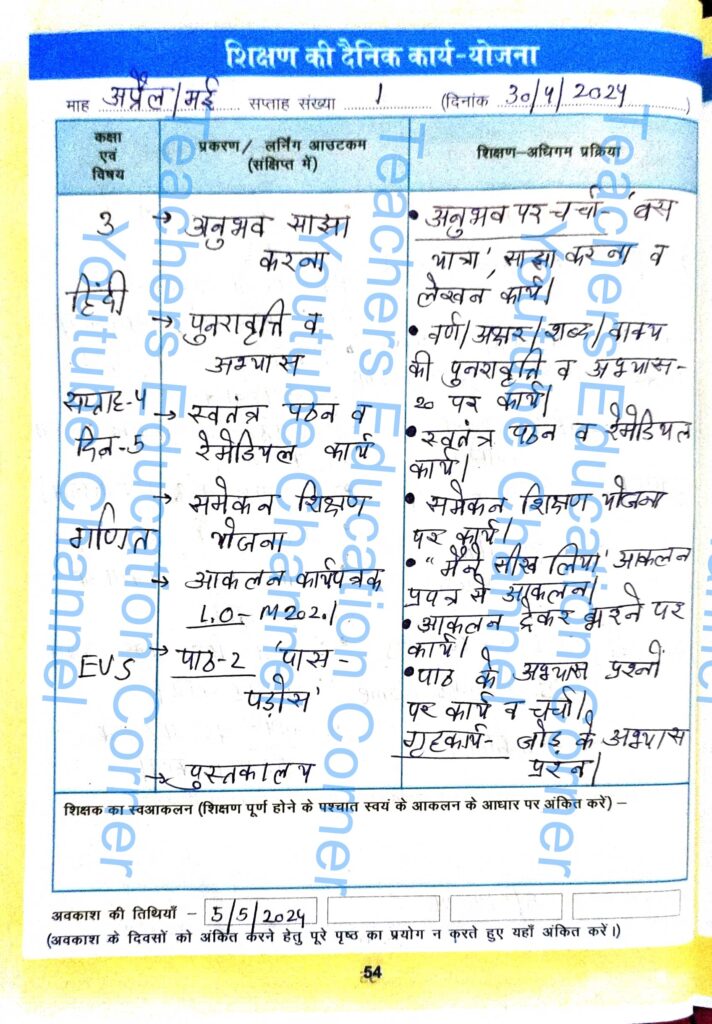 शिक्षण की दैनिक कार्य-योजना
माह अप्रैल/मई सप्ताह संख्या 1 (दिनांक 30/4/2024)
कक्षा एवं विषय
प्रकरण/ लर्निंग आउटकम (संक्षिप्त में)
शिक्षण-अधिगम प्रक्रिया
3
हिंदी
सप्ताह-4
दिन-5
→ अनुभव साझा
करना
→ पुनरावृत्ति व
अभ्यास
→ स्वतंत्र पठन व
रेमेडियल कार्य
• अनुभव पर चर्चा- 'बस
यात्रा', साझा करना व
लेखन कार्य।
• वर्ण/अक्षर/शब्द/वाक्य
की पुनरावृत्ति व अभ्यास-
पर कार्य।
• स्वतंत्र पठन व रेमेडियल
कार्य।
गणित
→ समेकन शिक्षण
योजना
→ आकलन कार्यपत्रक
L.O- M202.1
• समेकन शिक्षण योजना
पर कार्य।
• "मैंने सीख लिया' आकलन
प्रपत्र से आकलन।
• आकलन देकर भरने पर
कार्य।
EVS
→ पाठ-2 'पास-
पड़ोस'
→ पुस्तकालय
• पाठ के अभ्यास प्रश्नों
पर कार्य व चर्चा।
गृहकार्य- जोड़ के अभ्यास
प्रश्न।
शिक्षक का स्वआकलन (शिक्षण पूर्ण होने के पश्चात स्वयं के आकलन के आधार पर अंकित करें) –
अवकाश की तिथियाँ – 5/5/2024
(अवकाश के दिवसों को अंकित करने हेतु पूरे पृष्ठ का प्रयोग न करते हुए यहाँ अंकित करें।)
54
Teachers Education Corner
Youtube Channel
Teachers Education Corner
Youtube Channel
Teachers Education Corner
Youtube Channel